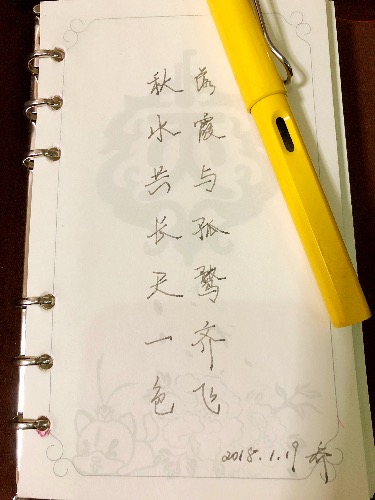 落霞与孤鹜齐飞
秋水共长天一色
2018.1.19 乔